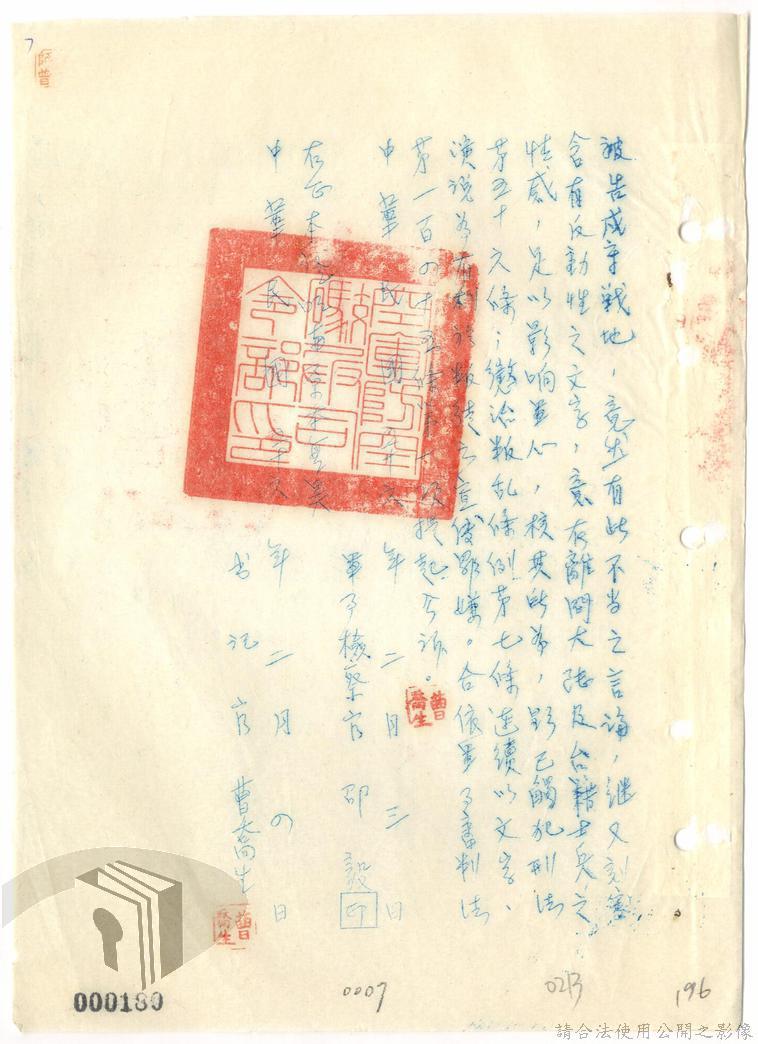 被告戍守戰地，竟然有此不当之言論，继又刻寫
含有反動性之文字，意在離间大陆及台籍士兵之
性感，足以影响軍心，核其所為，影已觸犯刑法
第五十六條；懲治叛乱条例第七條連續以文字、
演说為有利於叛徒之宣传罪嫌。合依軍事審判法
第一百四十五條第一項提起公诉。
中華民國五十六年二月三日
軍事檢察官 邵毅 印
右正本证明與原本無異
中華民國五十六年二月四日
书记官 曹喬生
曹喬生
曹喬生
000180
0007
0213
196
請合法使用公開之影像